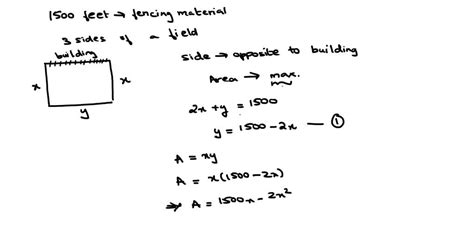 1500 feet → fencing material
3 sides of a field
building
x
x
y
side → opposite to building
Area → max.
2x + y = 1500
y = 1500 - 2x — ①
A = xy
A = x(1500 - 2x)
⇒ A = 1500x - 2x²